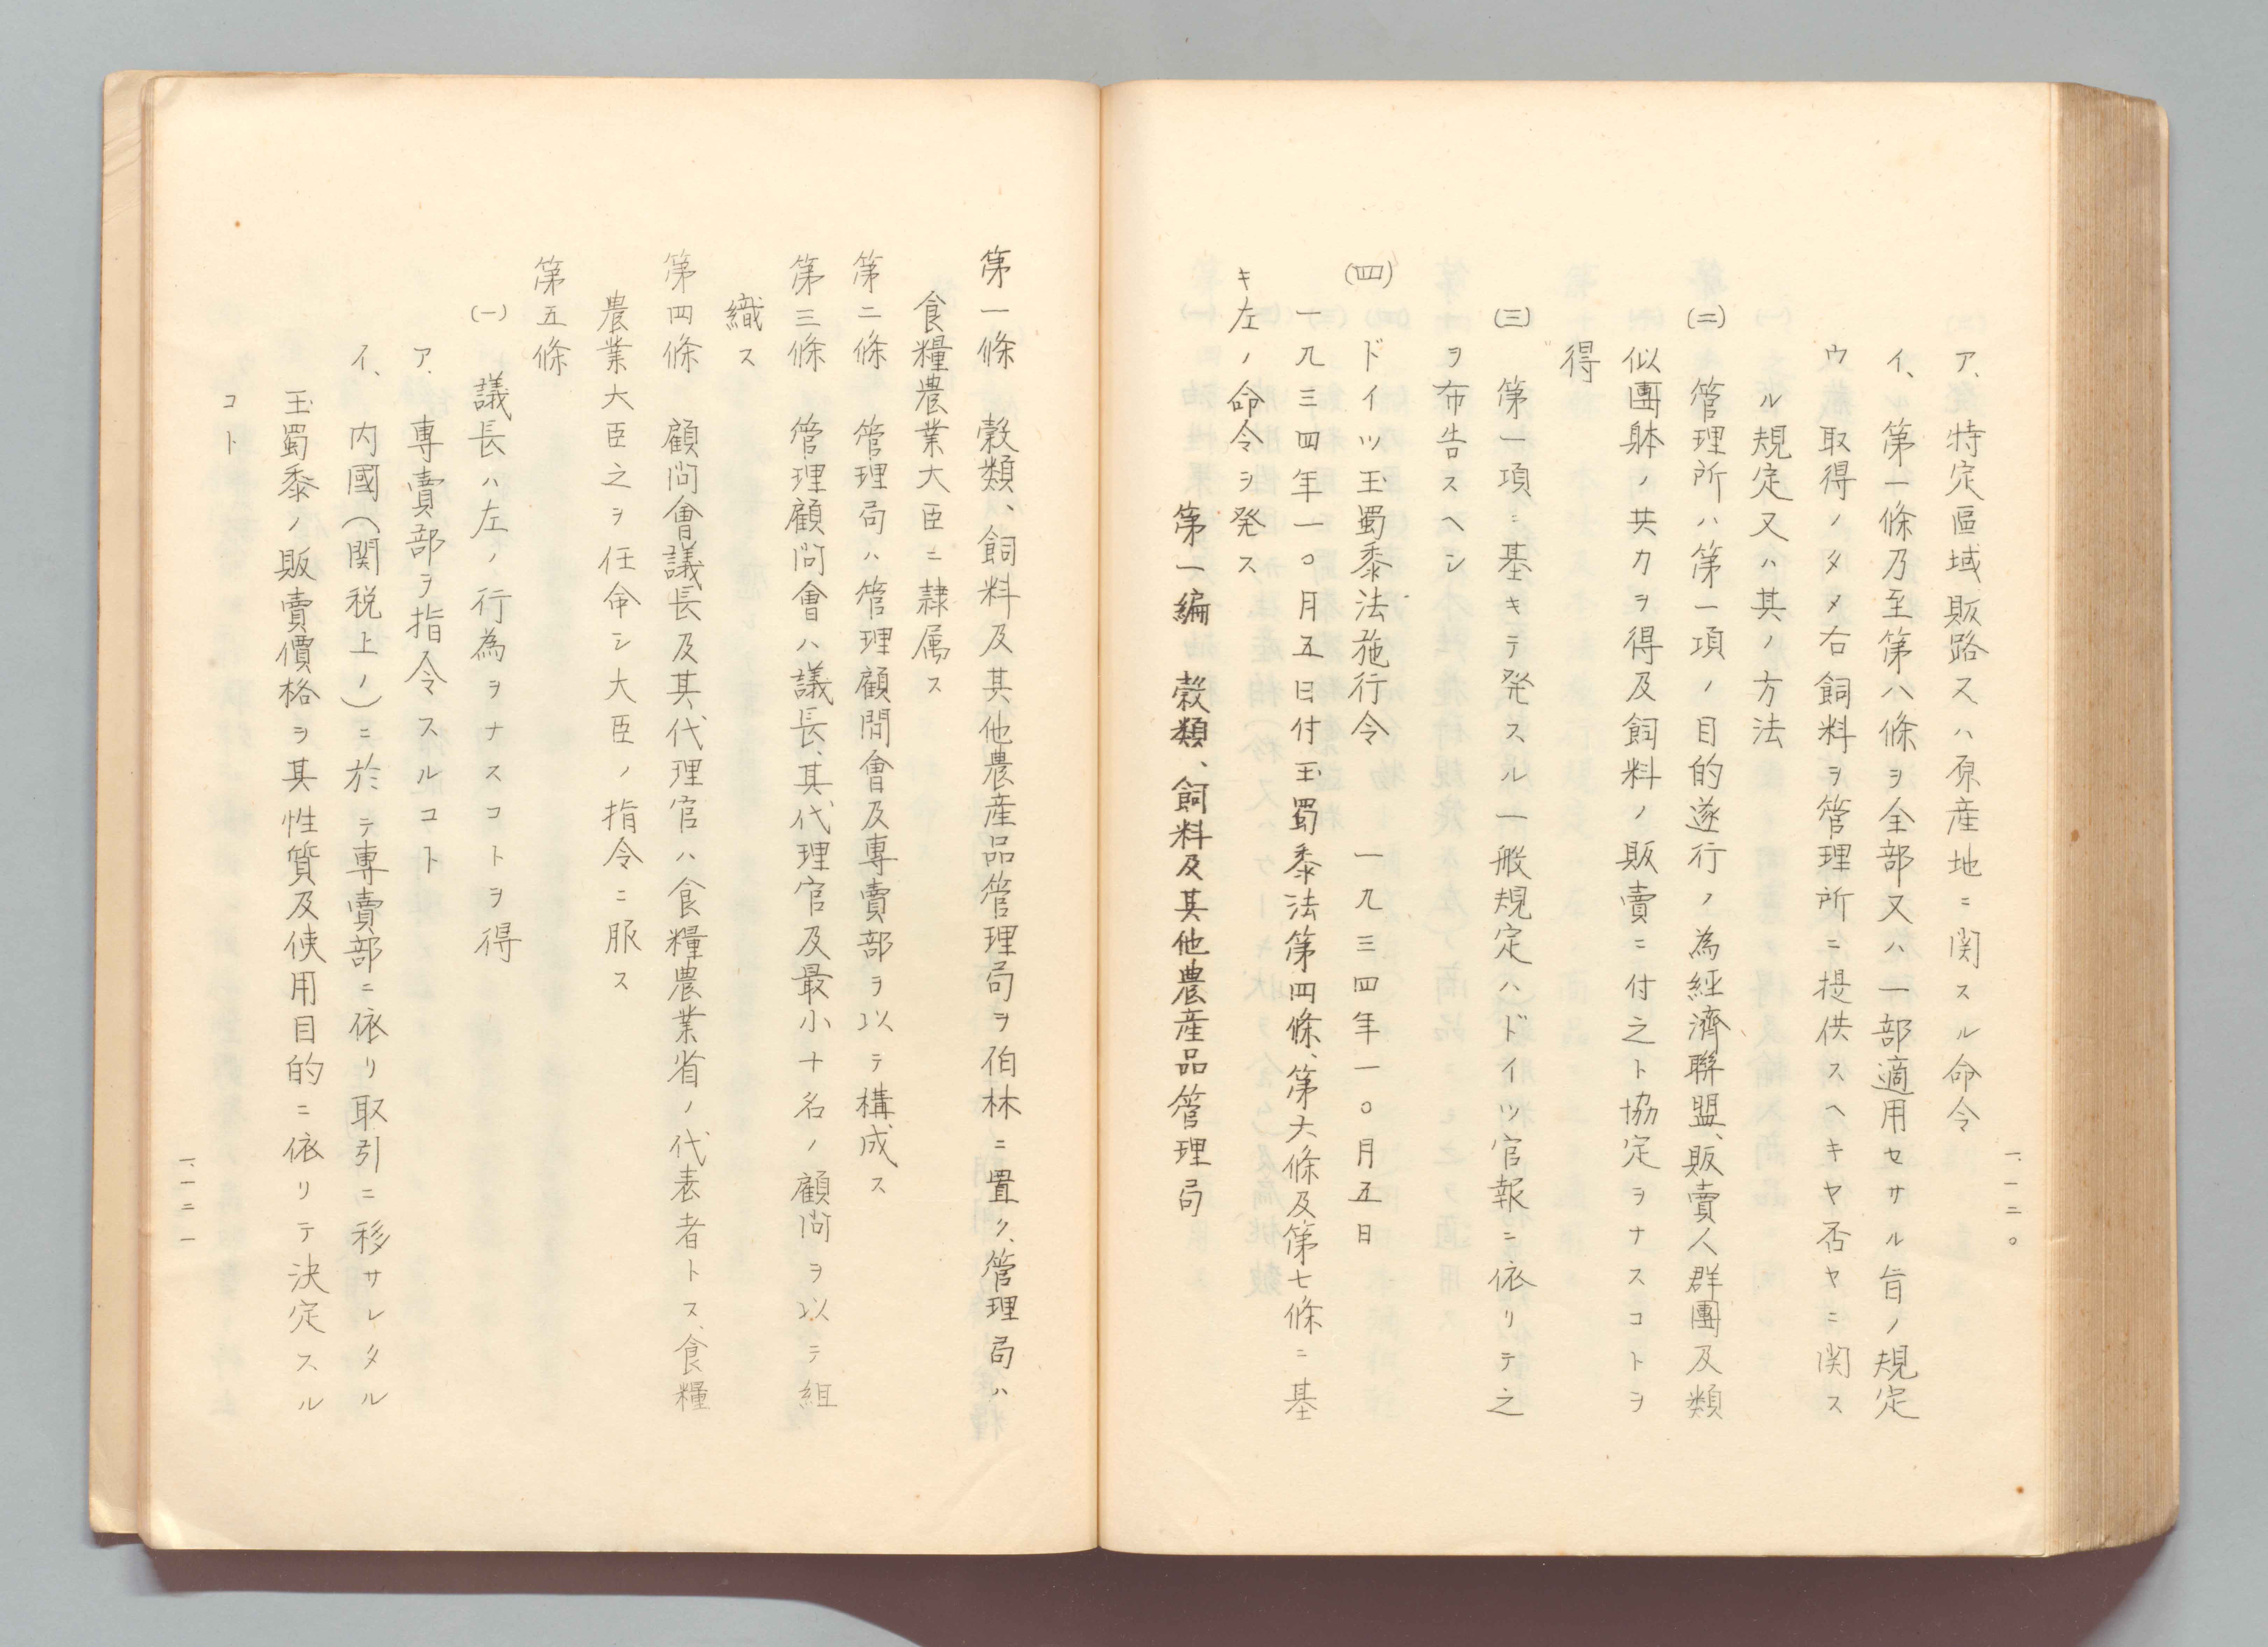 ア、特定區域販路又ハ原産地ニ関スル命令
イ、第一條乃至第八條ヲ全部又ハ一部適用セサル旨ノ規定
ウ取得ノタメ右飼料ヲ管理所ニ提供スヘキヤ否ヤニ関ス
ル規定又ハ其ノ方法
(二)管理所ハ第一項ノ目的遂行ノ為経濟聯盟、販賣人群團及類
似團躰ノ共力ヲ得及飼料ノ販賣ニ付之ト協定ヲナスコトヲ
得
(三)第一項ニ基キテ発スル一般規定ハドイツ官報ニ依リテ之
ヲ布告スヘシ
(四)ドイツ玉蜀黍法施行令 一九三四年一〇月五日
一九三四年一〇月五日付玉蜀黍法第四條、第六條及第七條ニ基
キ左ノ命令ヲ発ス
第一編 穀類、飼料及其他農産品管理局
一、一二〇
第一條 穀類、飼料及其他農産品管理局ヲ伯林ニ置ク、管理局ハ
食糧農業大臣ニ隷属ス
第二條 管理局ハ管理顧問會及専賣部ヲ以テ構成ス
第三條 管理顧問會ハ議長、其代理官及最小十名ノ顧問ヲ以テ組
織ス
第四條 顧問會議長及其代理官ハ食糧農業省ノ代表者トス、食糧
農業大臣之ヲ任命シ大臣ノ指令ニ服ス
第五條
(一)議長ハ左ノ行為ヲナスコトヲ得
ア、専賣部ヲ指令スルコト
イ、内國(関税上ノ)ニ於テ専賣部ニ依リ取引ニ移サレタル
玉蜀黍ノ販賣價格ヲ其性質及使用目的ニ依リテ決定スル
コト
一、一二一